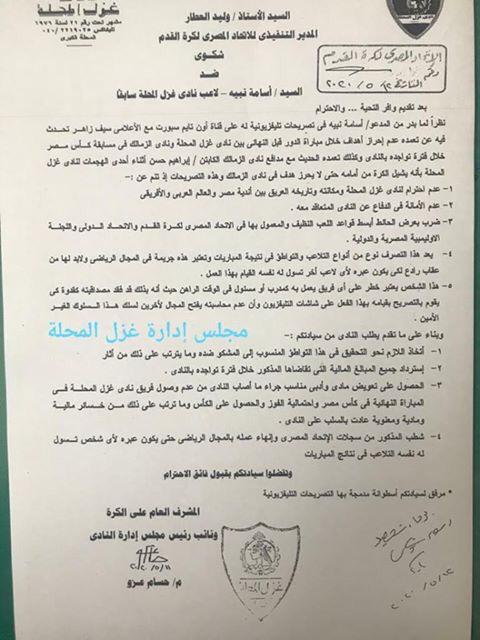 غزل المحلة
مشهر تحت رقم ٢١ لسنة ١٩٧٦
تليفاكس ٠٤٠/٢٢١٩٠٢٥
المحلة الكبرى
السيد الأستاذ / وليد العطار
المدير التنفيذى للاتحاد المصرى لكرة القدم
شكوى
ضد
السيد / أسامة نبيه – لاعب نادى غزل المحلة سابقا
الإتحاد المصري لكرة القدم
بعد تقديم وافر التحية ... والاحترام
نظراً لما بدر من المدعو/ أسامة نبيه فى تصريحات تليفزيونية له على قناة أون تايم سبورت مع الأعلامى سيف زاهر تحدث
فيه عن تعمده عدم إحراز أهداف خلال مباراة الدور قبل النهائى بين نادى غزل المحلة ونادى الزمالك فى مسابقة كأس مصر
خلال فترة تواجده بالنادى وكذلك تعمده الحديث مع مدافع نادى الزمالك الكابتن / إبراهيم حسن أثناء أحدى الهجمات لنادى غزل
المحلة بأنه يشيل الكرة من أمامه حتى لا يحرز هدف فى نادى الزمالك وهذه التصريحات إذ تلم عن :-
١- عدم احترام لنادى غزل المحلة ومكانته وتاريخه العريق بين أندية مصر والعالم العربى والأفريقى
٢- عدم الأمانة فى الدفاع عن النادى المتعاقد معه .
٣- ضرب بعرض الحائط أبسط قواعد اللعب النظيف والمعمول بها فى الاتحاد المصرى لكرة القدم والاتحاد الدولى واللجنة
الاوليمبية المصرية والدولية .
٤- يعد هذا التصرف نوع من أنواع التلاعب والتواطؤ فى نتيجة المباريات وتعتبر هذه جريمة فى المجال الرياضى ولابد لها من
عقاب رادع لكى يكون عبره لأى لاعب أخر تسول له نفسه القيام بهذا العمل .
٥- هذا الشخص يعتبر خطر على أى فريق يعمل به كمدرب أو مسئول فى الوقت الراهن حيث أنه بذلك قد فقد مصداقيته كقدوة كى
يقوم بالتصريح بقيامه بهذا الفعل على شاشات التليفزيون وأن عدم محاسبته يفتح المجال لأخرين لسلك هذا السلوك الغير
الأمين .
مجلس إدارة غزل المحلة
وبناء على ما تقدم يطلب النادى من سيادتكم :-
١- أتخاذ اللازم نحو التحقيق فى هذا التواطؤ المنسوب إلى المشكو ضده وما يترتب على ذلك من أثار
٢- إسترداد جميع المبالغ المالية التى تقاضاها المذكور خلال فترة تواجده بالنادى .
٣- الحصول على تعويض مادى وأدبى مناسب جراء ما أصاب النادى من عدم وصول فريق نادى غزل المحلة فى
المباراة النهائية فى كأس مصر واحتمالية الفوز والحصول على الكأس وما ترتب على ذلك من خسائر مالية
ومادية ومعنوية عادت بالسلب على النادى .
٤- شطب المذكور من سجلات الإتحاد المصرى وإنهاء عمله بالمجال الرياضى حتى يكون عبره لأى شخص تسول
له نفسه التلاعب فى نتائج المباريات
وتفضلوا سيادتكم بقبول فائق الاحترام
* مرفق لسيادتكم أسطوانة مدمجة بها التصريحات التليفزيونية
المشرف العام على الكرة
ونائب رئيس مجلس إدارة النادى
م/ حسام عزو
غزل المحلة